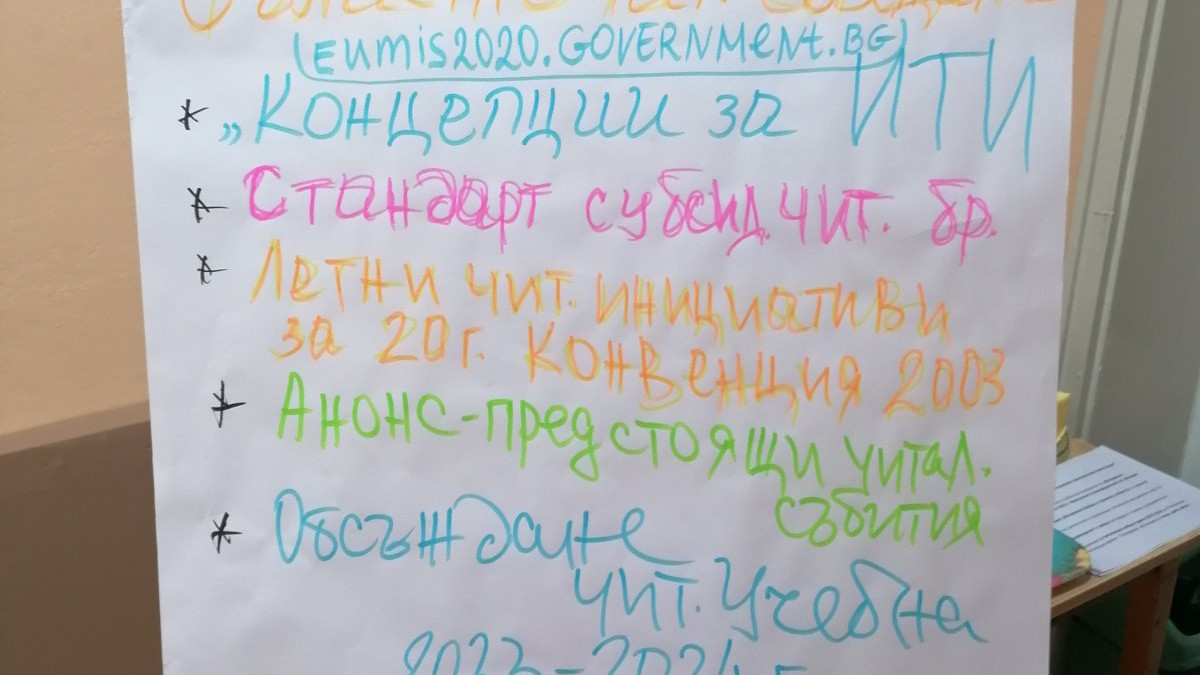 (eumis2020.GOVERNMENt.BG)
* „Концепции за ИТИ
* Стандарт субсид. чит. бр.
* Летни чит. инициативи
за 20г. Конвенция 2003
* Анонс-предстоящи читал.
събития
* Обсъждане
чит. Учебна
2023-2024 г.